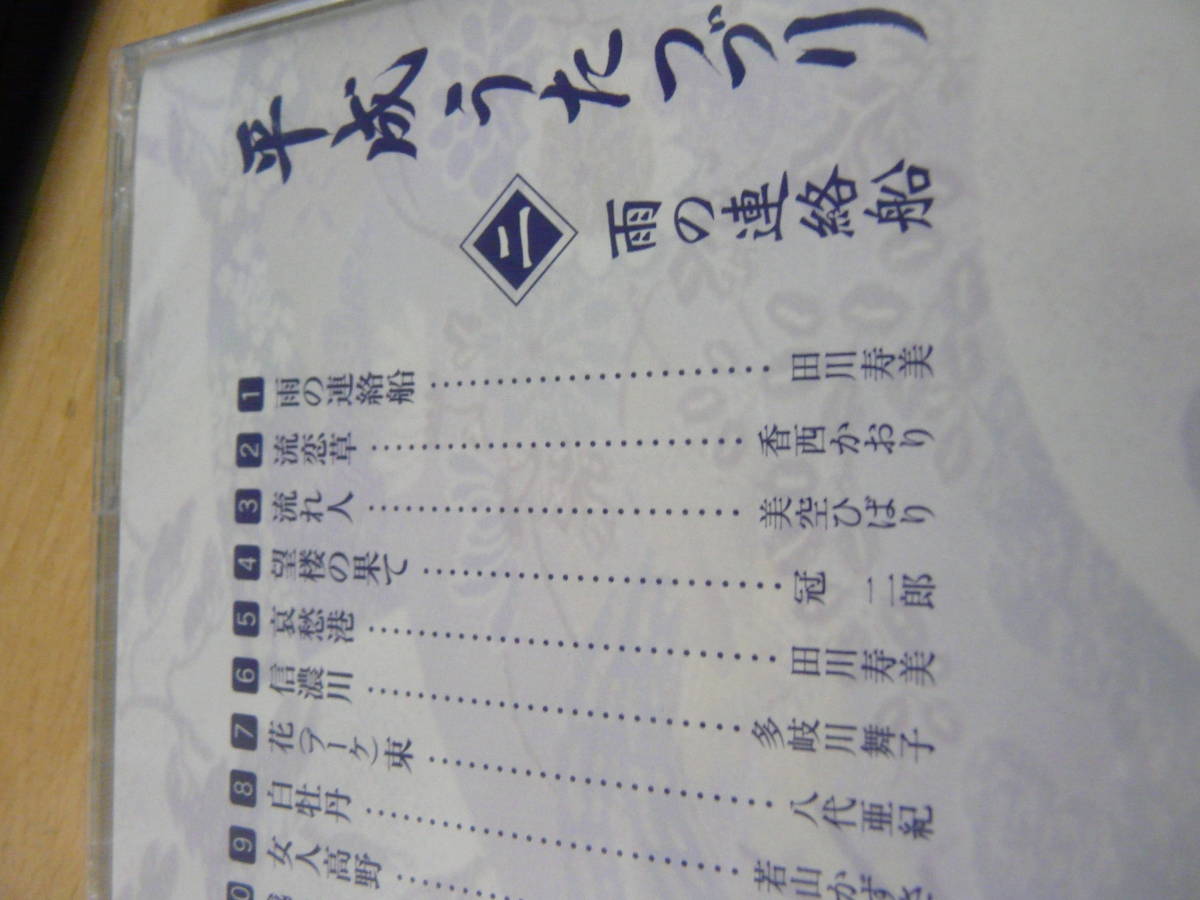 平成うたつづり
二 雨の連絡船
1 雨の連絡船 田川寿美
2 流恋草 香西かおり
3 流れ人 美空ひばり
4 望楼の果て 冠 二郎
5 哀愁港 田川寿美
6 信濃川 多岐川舞子
7 花(ブーケ)束 八代亜紀
8 白牡丹 若山かずさ
9 女人高野